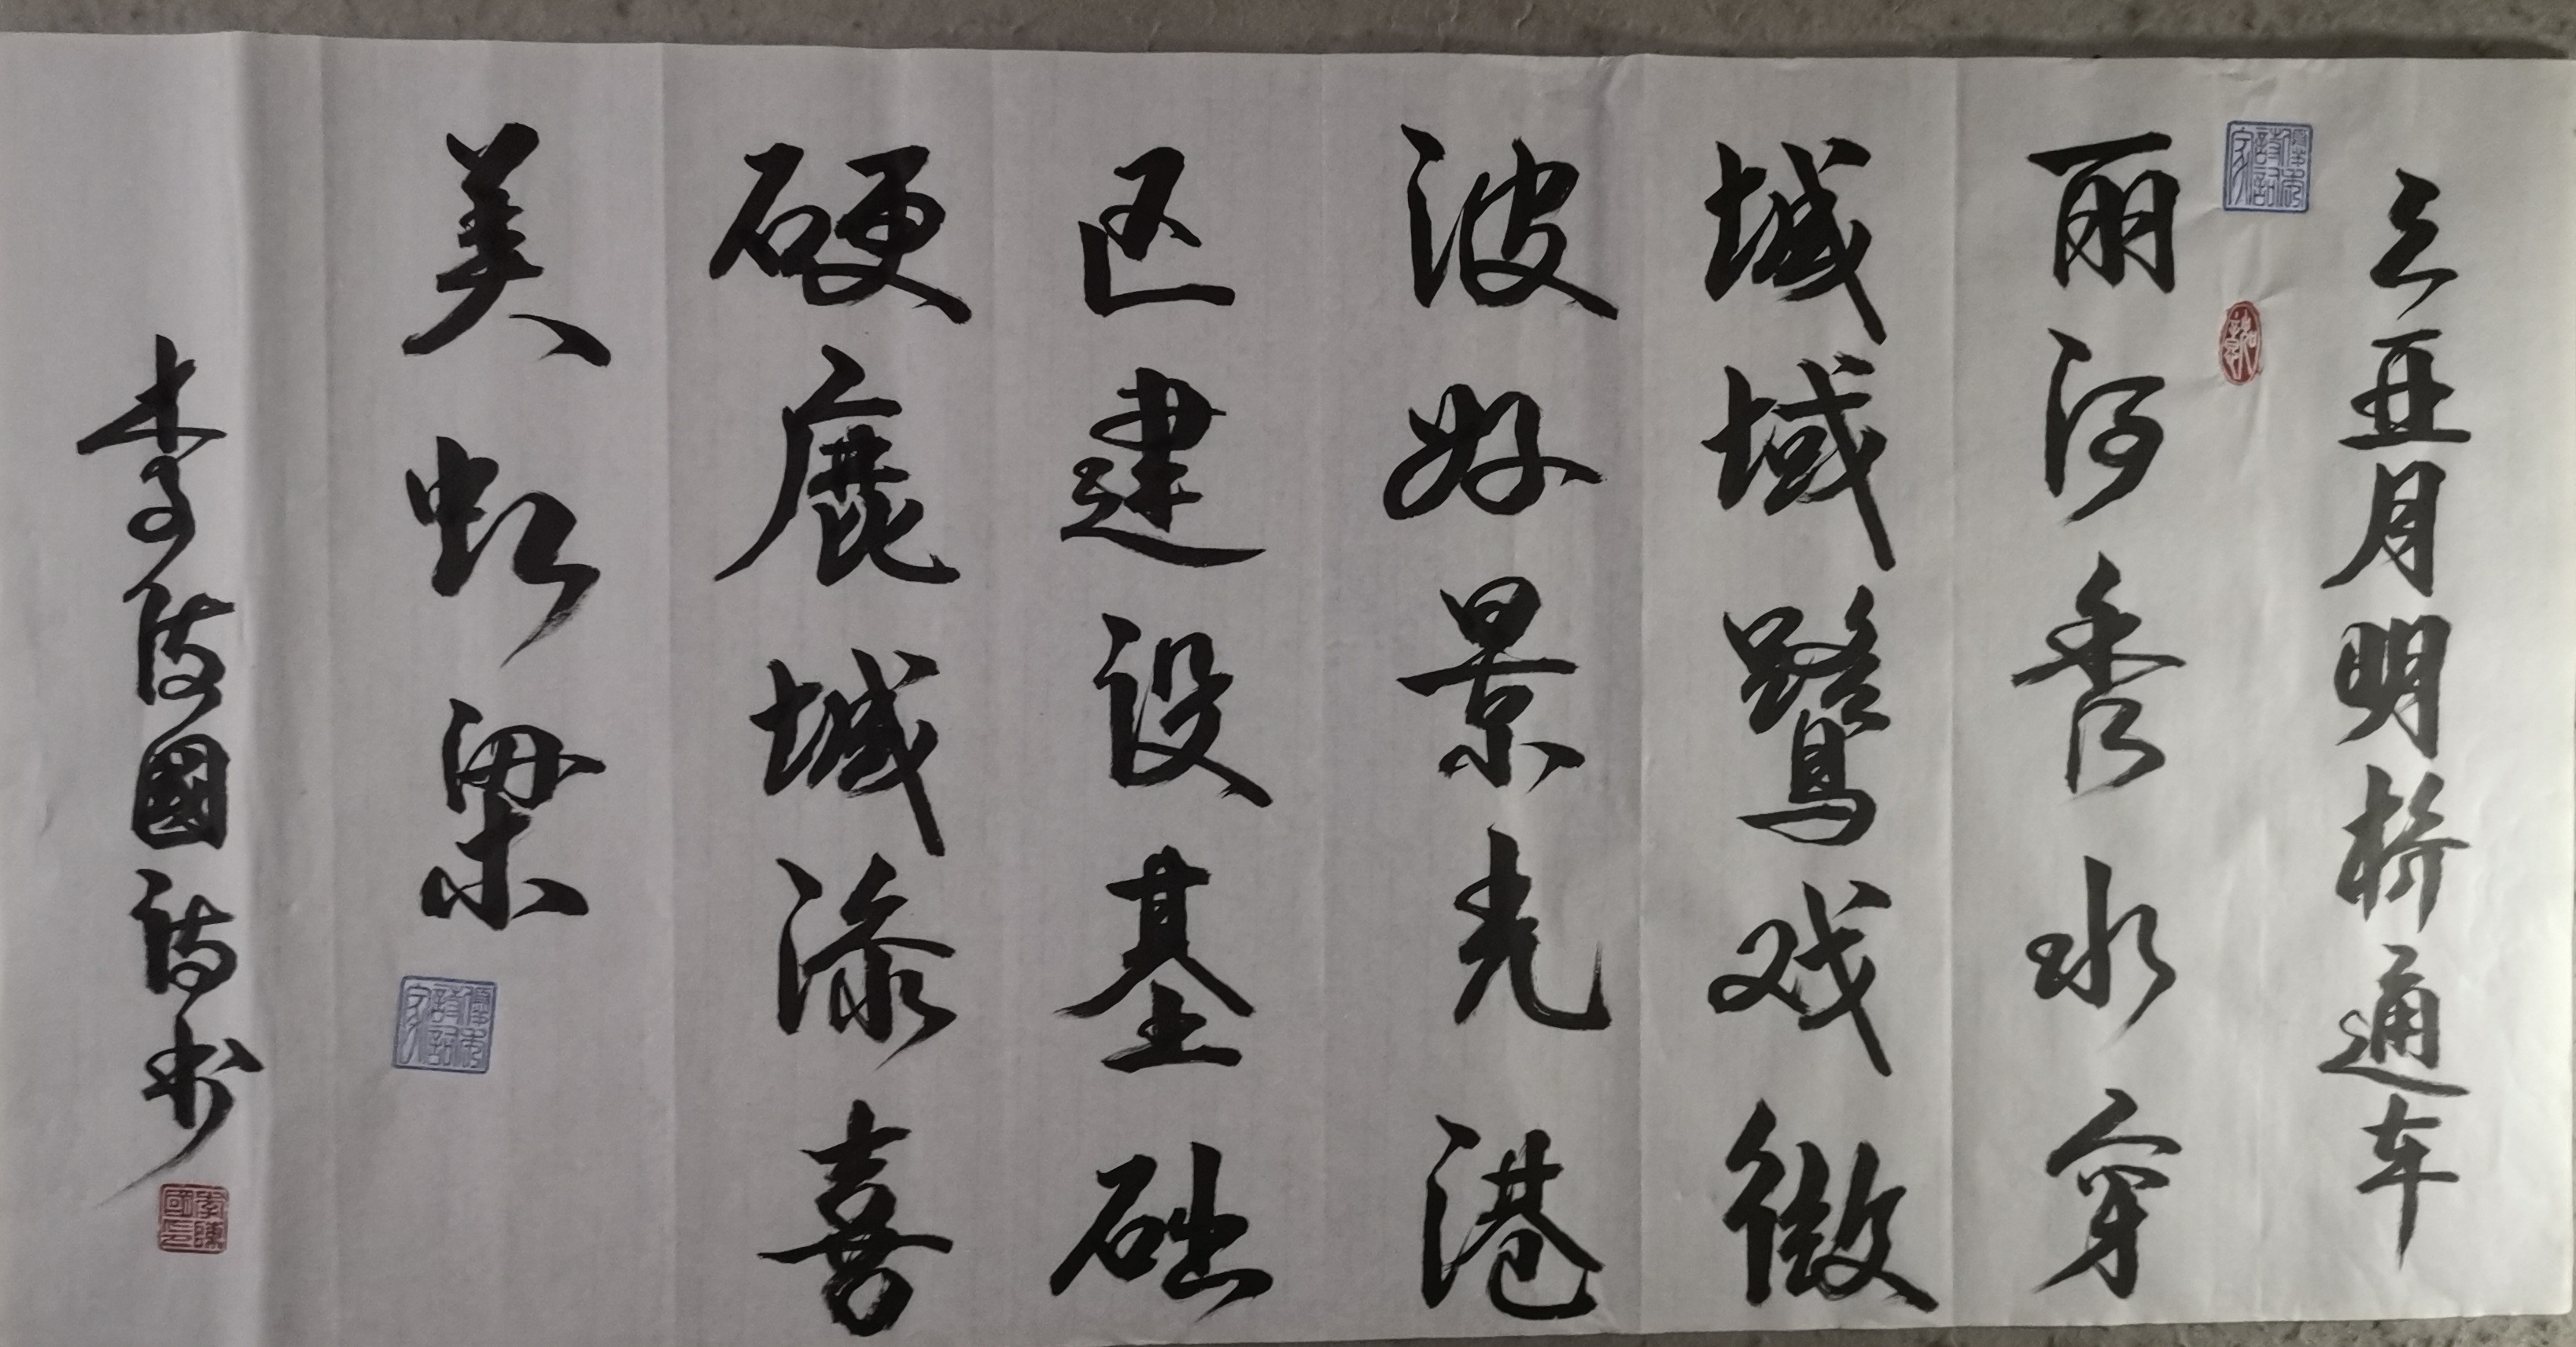 三亚月明桥通车
丽河秀水穿
城域鹭戏微
波好景光港
区建设基础
硬鹿城添喜
美虹梁
李陵國诗书